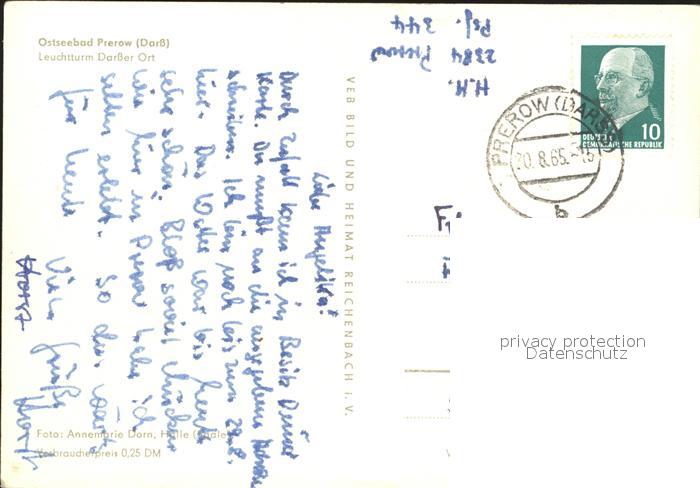 Ostseebad Prerow (Darß)
Leuchtturm Darßer Ort
Liebe Angelika!
Durch Zufall kam ich in Besitz Deiner
Karte. Du mußt an die angegebene Adresse
schreiben. Ich bin noch bis zum 29.8.
hier. Das Wetter war bis heute
sehr schön. Bloß soviel Mücken
wie hier in Prerow habe ich
selten erlebt. So das wär's
für heute
Viele Grüße
Horst
VEB BILD UND HEIMAT REICHENBACH i. V.
Foto: Annemarie Dorn, Halle (Saale)
Verbraucherpreis 0,25 DM
H.H.
2384 Prerow
Psf. 344
PREROW (DARSS)
20.8.65.-15
b
10
DEUTSCHE
DEMOKRATISCHE REPUBLIK
privacy protection
Datenschutz